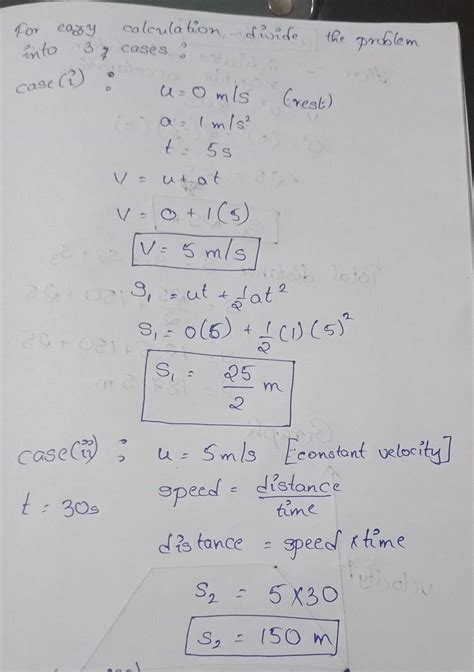 For eazy calculation divide the problem
into 3 cases :
case(i) : u = 0 m/s (rest)
a = 1 m/s²
t = 5s
V = u + at
V = 0 + 1(5)
V = 5 m/s
S₁ = ut + 1/2 at²
S₁ = 0(5) + 1/2 (1) (5)²
S₁ = 25/2 m
case(ii) : u = 5m/s [constant velocity]
t = 30s
speed = distance/time
distance = speed × time
S₂ = 5×30
S₂ = 150 m